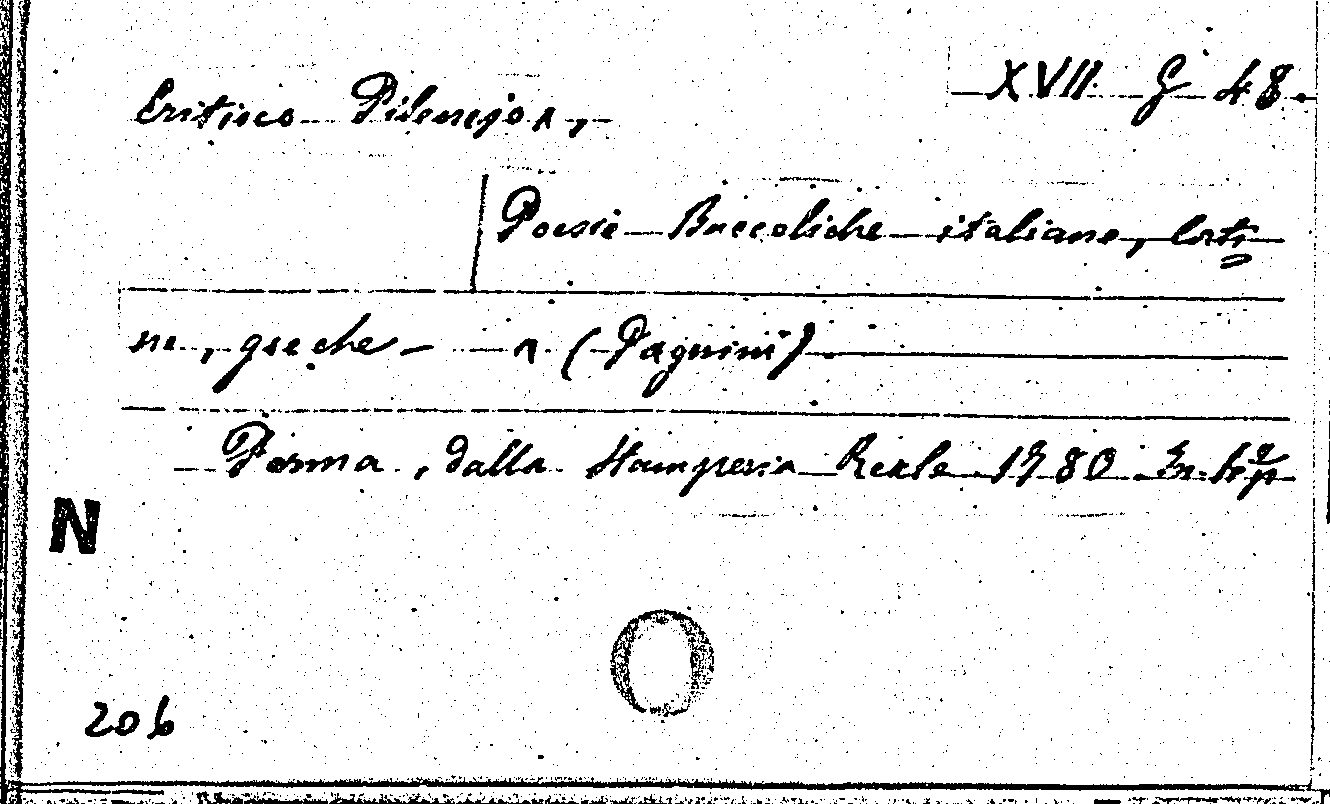 XVII G 48.
Eritisco Pilenejo,
Poesie Buccoliche italiane, lati
ne, greche — (Pagnini)
Parma, dalla Stamperia Reale 1780 In-
N
206